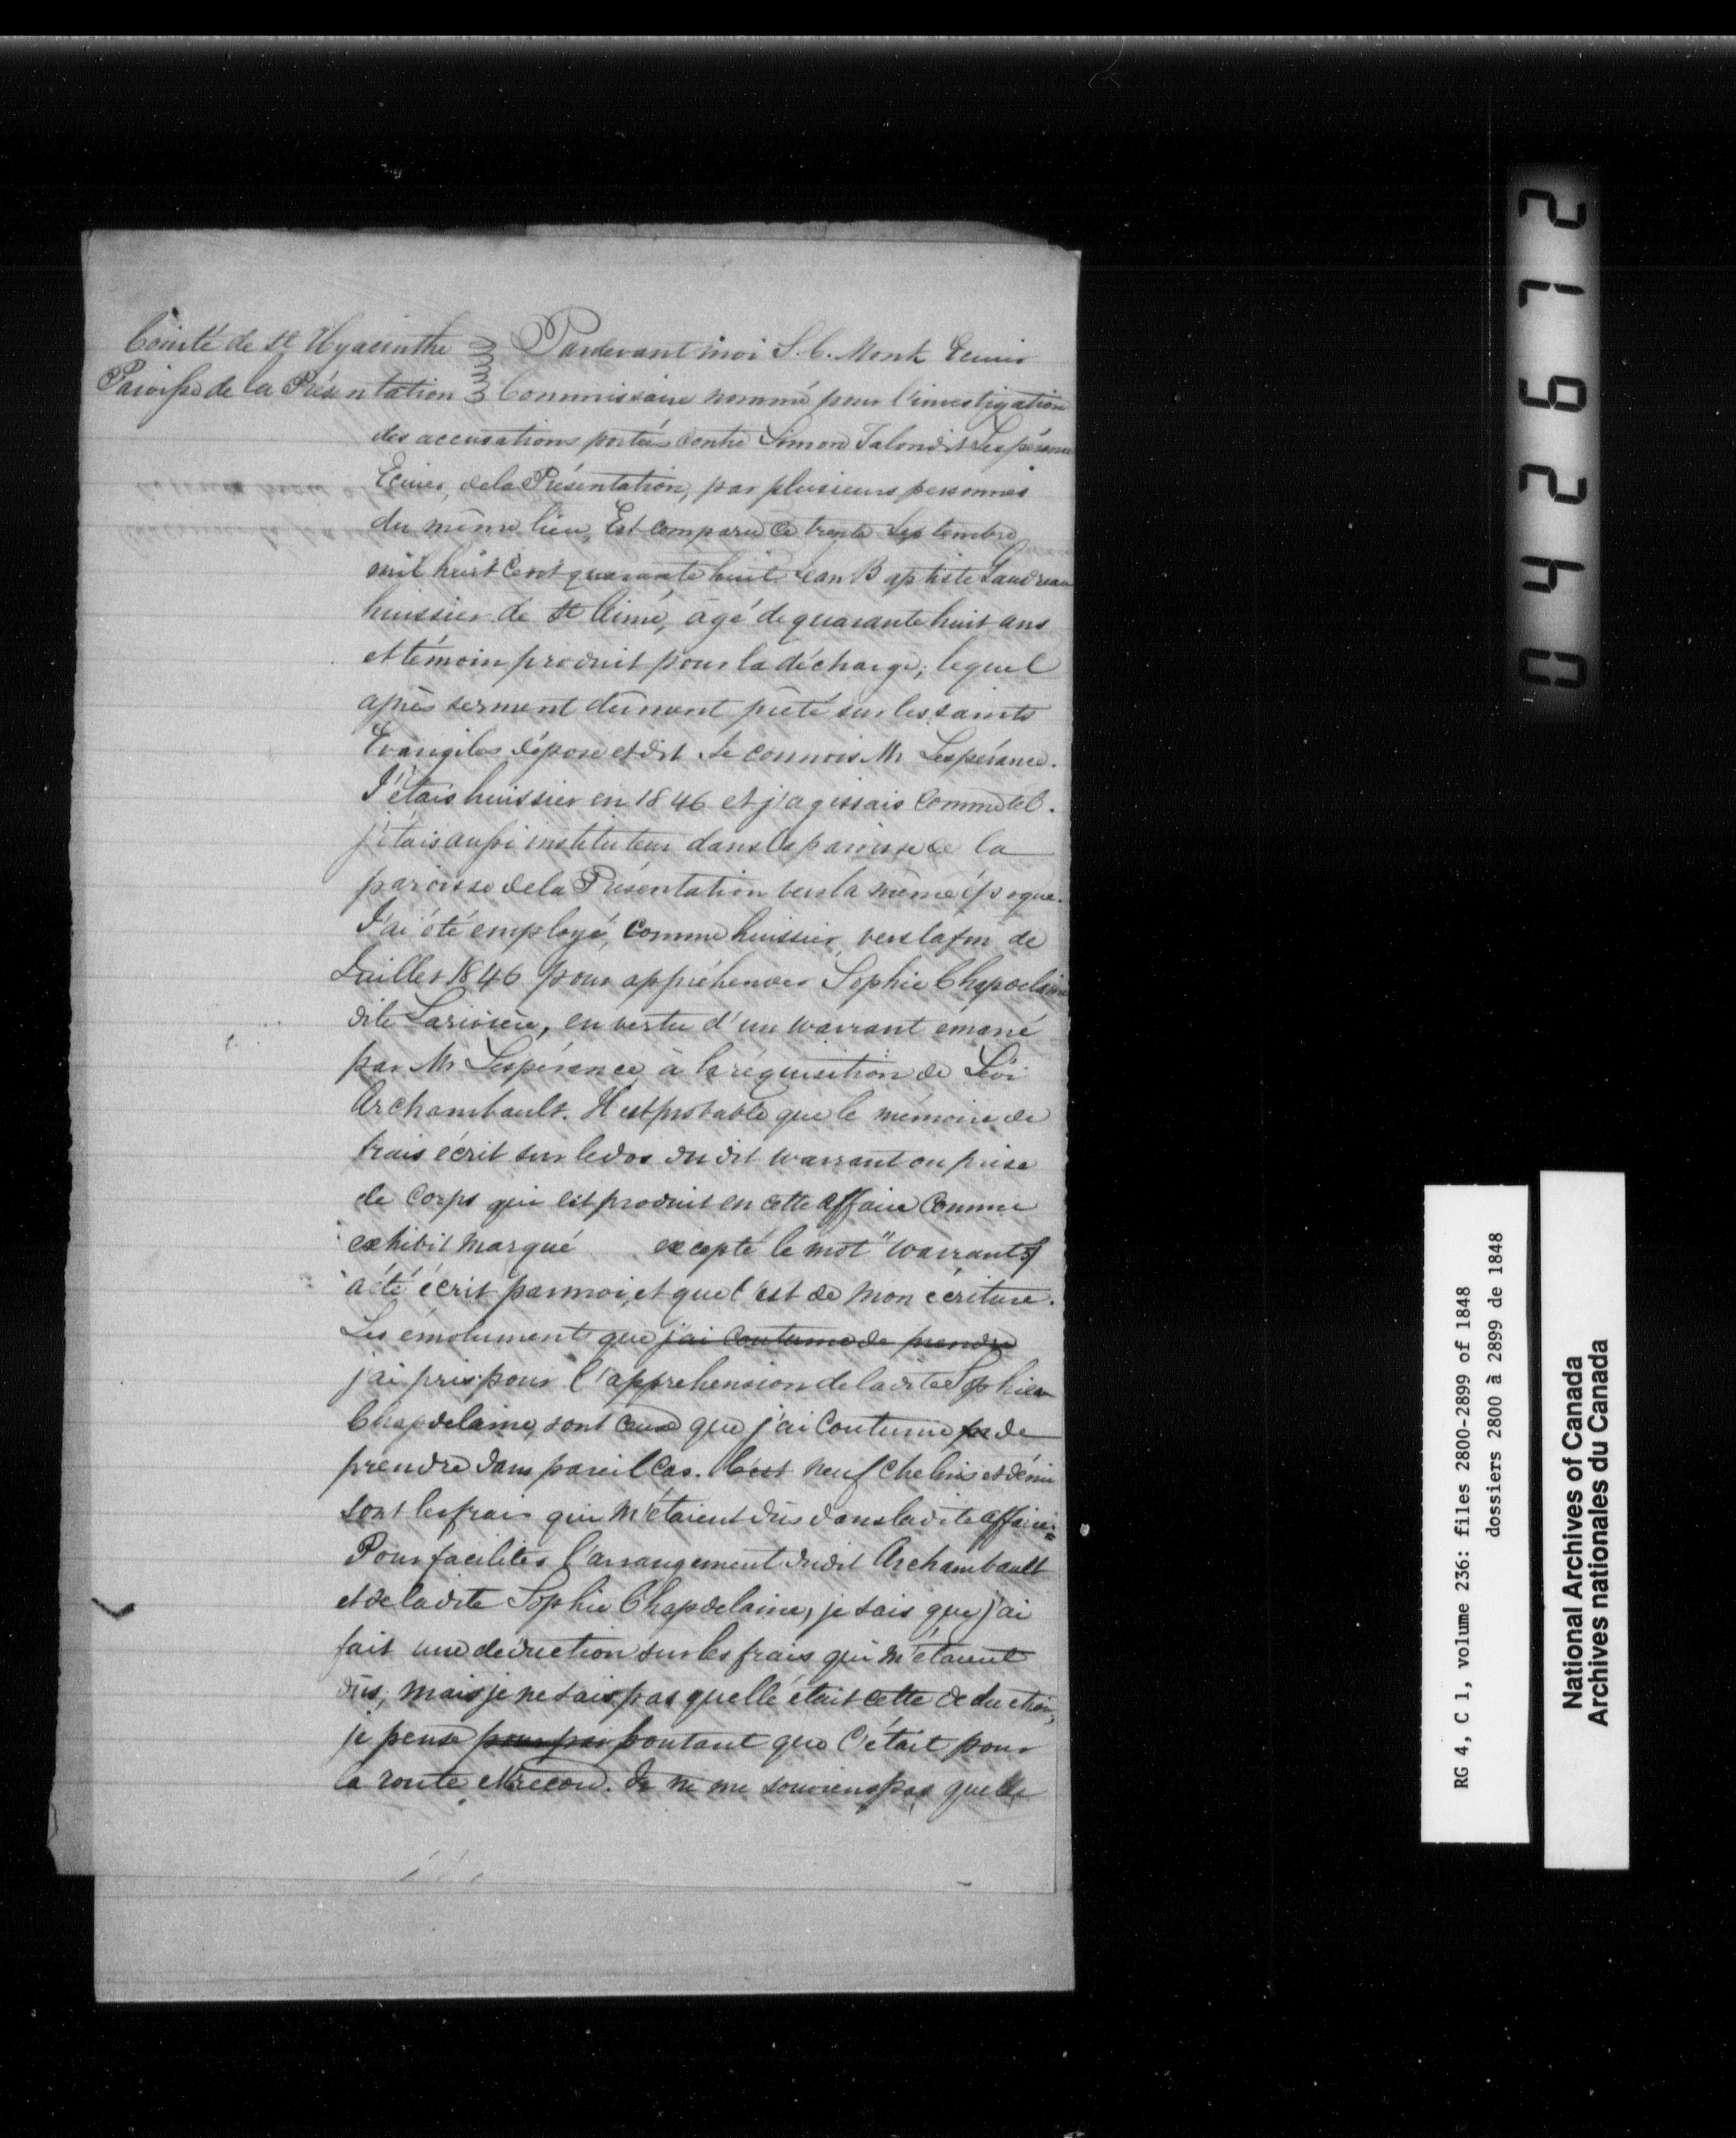 Comté de St Hyacinthe
Paroisse de la Présentation
Pardevant moi S. C. Monk Ecuier
Commissaire nommé pour l'investigation
des accusations portées contre Simon Talon dit Lespérance
Ecuier, de la Présentation, par plusieurs personnes
du même lieu, Est comparu ce trente Septembre
mil huit Cent quarante huit Jean Baptiste Gaudreau
huissier de St Aimé, âgé de quarante huit ans
et témoin produit pour la décharge; lequel
après serment dûment prêté sur les saints
Evangiles dépose et dit. Je connois Mr Lespérance.
J'étais huissier en 1846 et j'agissais Comme tel.
j'étais aussi instituteur dans la paroisse de la
paroisse de la Présentation vers la même époque.
J'ai été employé, Comme huissier vers la fin de
Juillet 1846 pour appréhender Sophie Chapdelaine
dite Larivière, en vertu d'un warrant émané
par Mr Lespérance à la réquisition de Lévi
Archambault. Il est probable que le mémoire de
frais écrit sur le dos du dit warrant ou prise
de Corps qui est produit en cette affaire Comme
exhibit marqué excepté le mot "warrant"
a été écrit par moi, et que c'est de mon écriture.
Les émoluments que j'ai Coutume de prendre
j'ai pris pour l'appréhension de la dite Sophie
Chapdelaine, sont ceux que j'ai Coutume de
prendre dans pareil Cas. C'est neuf Chelins et démi
sont les frais qui m'étaient dûs dans la dite affaire.
Pour faciliter l'arrangement du dit Archambault
et de la dite Sophie Chapdelaine, je sais que j'ai
fait une déduction sur les frais qui m'étaient
dûs, mais je ne sais pas quelle était cette deduction,
je pense pourtant que C'était pour
la route. Je ne me souviens pas quelle
042672
RG 4, C 1, volume 236: files 2800-2899 of 1848
dossiers 2800 à 2899 de 1848
National Archives of Canada
Archives nationales du Canada